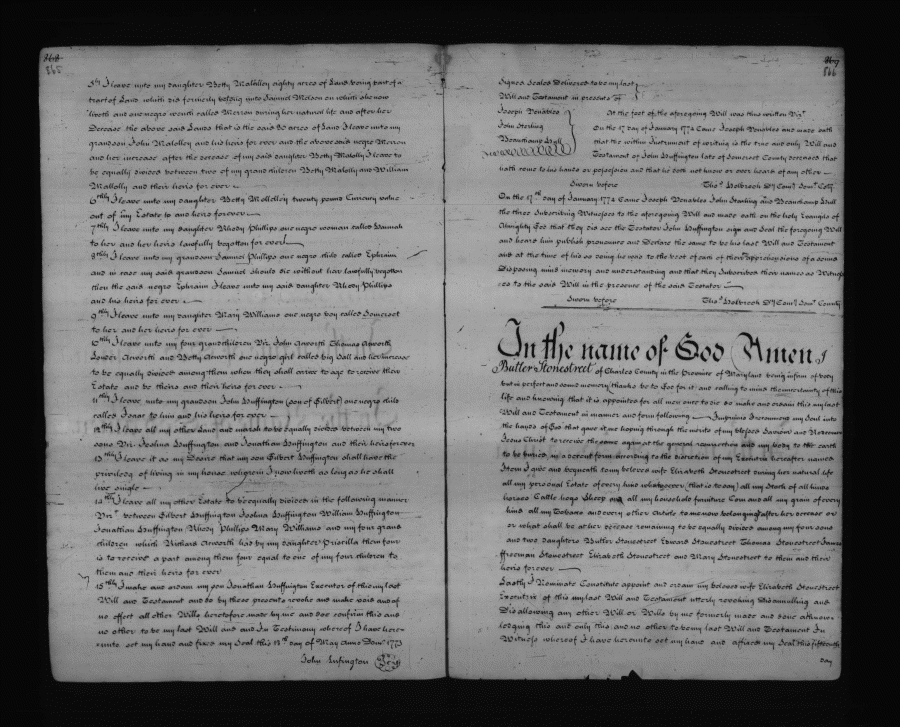 865
5th I leave unto my daughter Betty Malolley eighty acres of Land being part of a
tract of Land which did formerly belong unto Samuel Melson on which she now
liveth and one negro wench called Merron during her natural life and after her
Decease the above said Lands that is the said 80 acres of Land I leave unto my
grandson John Malolley and his heirs for ever and the above said negro Merron
and her increase after the decease of my said daughter Betty Malolly I leave to
be equally divided between two of my grand children Betty Malolly and William
Malolly and their heirs for ever
6thly I leave unto my daughter Betty Mollolley twenty pounds Currency value
out of my Estate to and heirs forever
7thly I leave unto my daughter Rhody Phillips one negro woman called Hannah
to her and her heirs lawfully begotten for ever
8thly I leave unto my grandson Samuel Phillips one negro child called Ephraim
and in case my said grandson Samuel should die without heir lawfully begotten
then the said negro Ephraim I leave unto my said daughter Rhody Phillips
and his heirs for ever
9thly I leave unto my daughter Mary Williams one negro boy called Somerset
to her and her heirs for ever
10thly I leave unto my four grandchildren Viz. John Acworth Thomas Acworth
Acworth and Betty Acworth one negro girl called big Sall and her increase
to be equally divided among them when they shall arrive to age to receive their
Estate and be theirs and their heirs for ever
11thly I leave unto my grandson John Huffington (son of Gilbert) one negro child
called Isaac to him and his heirs for ever
12thly I leave all my other Land and marsh to be equally divided between my two
sons Viz. Joshua Huffington and Jonathan Huffington and their heirs forever
13thly I leave it as my Desire that my son Gilbert Huffington shall have the
priviledg of living in my house wherein I now liveth as long as he shall
live single
14thly I leave all my other Estate to be equally divided in the following manner
Viz. between Gilbert Huffington Joshua Huffington William Huffington
Jonathan Huffington Rhody Phillips Mary Williams and my four grand
children which Richard Acworth had by my daughter Priscilla them four
is to receive a part among them four equal to one of my four children to
them and their heirs for ever
15thly I make and ordain my son Jonathan Huffington Executor of this my last
Will and Testament and do by these presents revoke and make void and of
no effect all other Wills heretofore made by me and doe confirm this and
no other to be my last Will and and In Testimony whereof I have here
unto set my hand and fixed my Seal this day of May Anno Dom. 1773
John Huffington Seal
866
Signed Sealed Delivered to be my last
Will and Testament in presents of
Joseph Venables
John Starling
Beauchamp Hull
At the foot of the aforegoing Will was thus written Viz.
On the 17 day of January 1774 Came Joseph Venables and made oath
that the within Instrument of writing is the true and only Will and
Testament of John Huffington late of Somerset County deceased that
hath come to his hands or possession and that he doth not know or ever heard of any other
Sworn before Thos. Holbrook Dy. Comy. Som. Coty.
On the 17th day of January 1774 Came Joseph Venables John Starling and Beauchamp Hull
the three Subscribing Witnesses to the aforegoing Will and made oath on the holy Evangels of
Almighty God that they did see the Testator John Huffington sign and Seal the foregoing Will
and heard him publish pronounce and Declare the same to be his last Will and Testament
and at the time of his so doing he was to the best of each of their apprehensions of a sound
Disposing mind memory and understanding and that they Subscribed their names as Witnes
ses to the said Will in the presence of the said Testator
Sworn before Thos. Holbrook Dy. Comy. Som. County
In the name of God Amen I
Butler Stonestreet of Charles County in the Province of Maryland being infirm of body
but in perfect and sound memory thanks be to God for it and calling to mind the uncertainty of this
life and knowing that it is appointed for all men once to die do make and ordain this my last
Will and Testament in manner and form following Imprimis I recommend my Soul into
the hands of God that gave it me hoping through the merits of my blessed Saviour and Redeemer
Jesus Christ to receive the same again at the general resurrection and my body to the earth
to be buried in a decent form according to the discretion of my Executrix hereafter named
Item I give and bequeath to my beloved wife Elizabeth Stonestreet during her natural life
all my personal Estate of every kind whatsoever (that is to say) all my Stock of all kinds
horses Cattle hogs Sheep and all my household furniture Corn and all my grain of every
kind all my Tobacco and every other Article to me now belonging after her decease or
or what shall be at her decease remaining to be equally divided among my four sons
and two daughters Butler Stonestreet Edward Stonestreet Thomas Stonestreet James
ffreeman Stonestreet Elizabeth Stonestreet and Mary Stonestreet to them and their
heirs forever
Lastly I Nominate Constitute appoint and ordain my beloved wife Elizabeth Stonestreet
Executrix of this my last Will and Testament utterly revoking Disannulling and
Disallowing any other Will or Wills by me formerly made and done acknow
ledging this and only this and no other to be my last Will and Testament In
Witness whereof I have hereunto set my hand and affixed my Seal this fifteenth
day